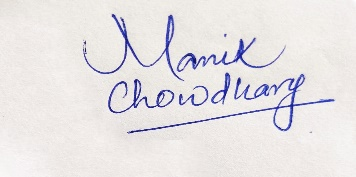 Manik
Chowdhary